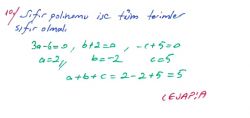 10) Sıfır polinomu ise tüm terimler
sıfır olmalı
3a-6=0, b+2=0, -c+5=0
a=2, b=-2 c=5
a+b+c = 2-2+5 = 5
CEVAP:A